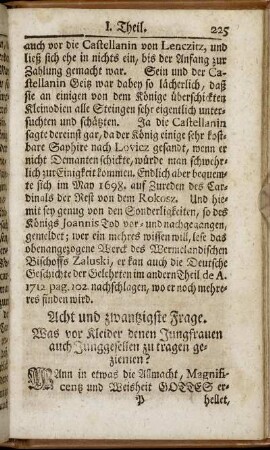 I. Theil. 225
auch vor die Castellanin von Lenczitz, und
ließ sich ehe in nichts ein, bis der Anfang zur
Zahlung gemacht war. Sein und der Ca-
stellanin Geitz war dabey so lächerlich, daß
sie an einigen von dem Könige überschickten
Kleinodien alle Steingen sehr eigentlich unter-
suchten und schätzten. Ja die Castellanin
sagte dereinst gar, da der König einige sehr kost-
bare Saphire nach Lovicz gesandt, wenn er
nicht Demanten schickte, würde man schwehr-
lich zur Einigkeit kommen. Endlich aber bequem-
te sich im May 1698. auf Zureden des Car-
dinals der Rest von dem Rokosz. Und hie-
mit sey genug von den Sonderligkeiten, so des
Königs Joannis Tod vor- und nachgegangen,
gemeldet; wer ein mehres wissen will, lese das
obenangezogene Werck des Wermelandischen
Bischoffs Zaluski, er kan auch die Deutsche
Geschichte der Gelehrten im andern Theil de A.
1712 pag. 102 nachschlagen, wo er noch mehre-
res finden wird.
Acht und zwantzigste Frage.
Was vor Kleider denen Jungfrauen
auch Junggesellen zu tragen ge-
ziemen?
Wann in etwas die Allmacht, Magnifi-
centz und Weisheit GOTTES er-
P hellet,